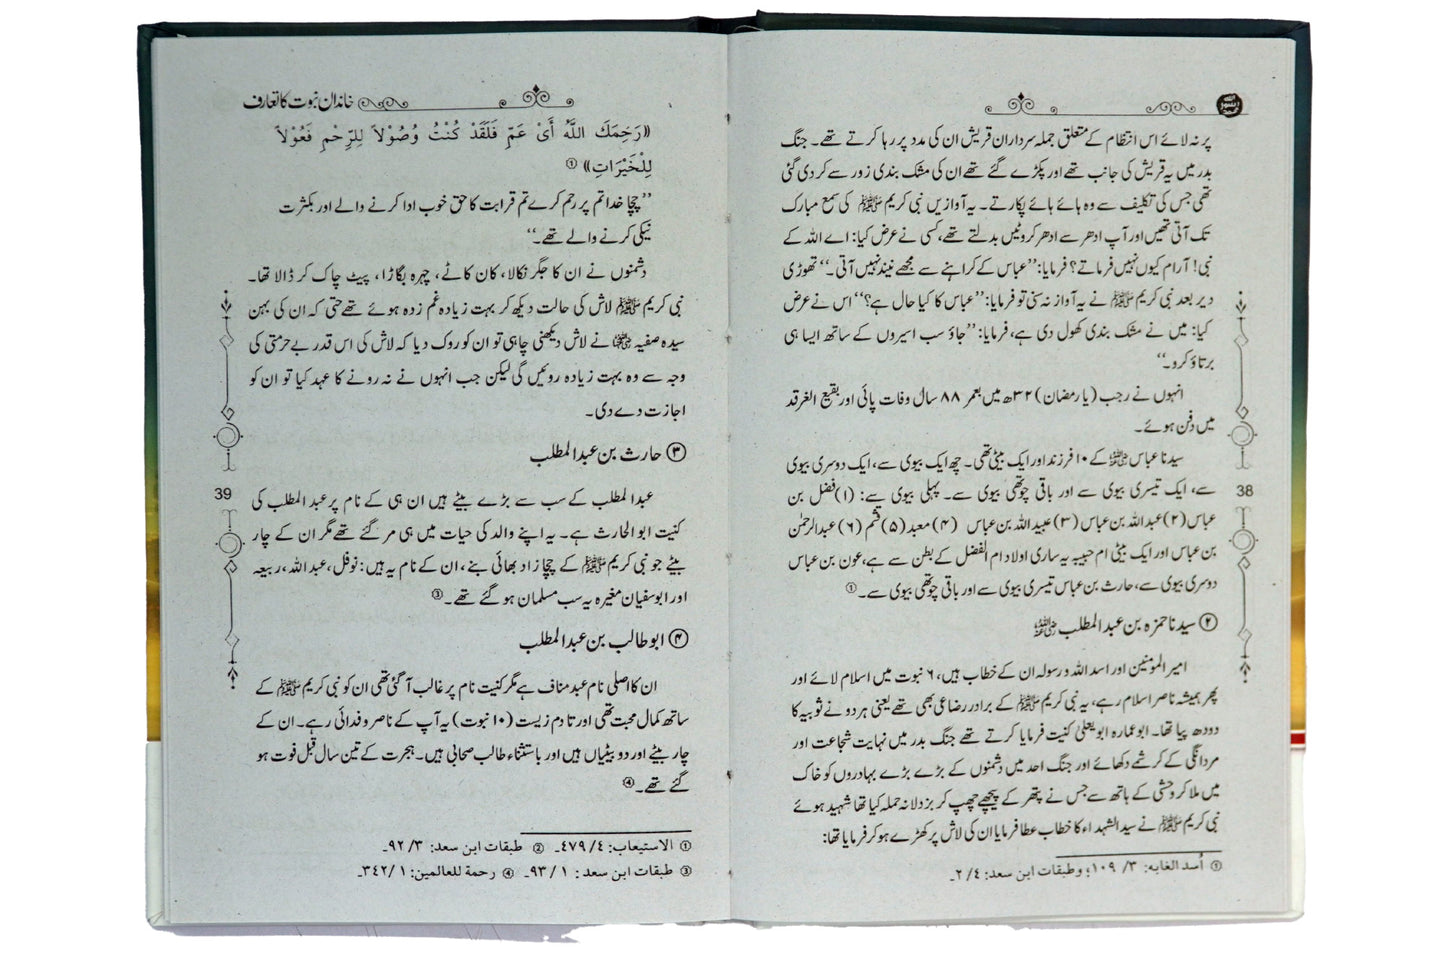 پر نہ لائے اس انتظام کے متعلق جملہ سرداران قریش ان کی مدد پر رہا کرتے تھے۔ جنگ
بدر میں یہ قریش کی جانب تھے اور پکڑے گئے تھے ان کی مشک بندی زور سے کر دی گئی
تھی جس کی تکلیف سے وہ ہائے ہائے پکارتے۔ یہ آوازیں نبی کریم ﷺ کی سمع مبارک
تک آتی تھیں اور آپ ادھر سے ادھر کروٹیں بدلتے تھے، کسی نے عرض کیا: اے اللہ کے
نبی! آرام کیوں نہیں فرماتے؟ فرمایا: ’’عباس کے کراہنے سے مجھے نیند نہیں آتی۔‘‘ تھوڑی
دیر بعد نبی کریم ﷺ نے یہ آواز نہ سنی تو فرمایا: ’’عباس کا کیا حال ہے؟‘‘ اس نے عرض
کیا: میں نے مشک بندی کھول دی ہے، فرمایا: ’’جاؤ سب اسیروں کے ساتھ ایسا ہی
برتاؤ کرو۔‘‘
انہوں نے رجب (یا رمضان) ۳۲ھ میں بعمر ۸۸ سال وفات پائی اور بقیع الغرقد
میں دفن ہوئے۔
سیدنا عباس رضی اللہ عنہ کے ۱۰ فرزند اور ایک بیٹی تھی۔ چھ ایک بیوی سے، ایک دوسری بیوی
سے، ایک تیسری بیوی سے اور باقی چوتھی بیوی سے۔ پہلی بیوی سے: (۱) فضل بن
عباس (۲) عبداللہ بن عباس (۳) عبیداللہ بن عباس (۴) معبد (۵) قثم (۶) عبدالرحمٰن
بن عباس اور ایک بیٹی ام حبیبہ یہ ساری اولاد ام الفضل کے بطن سے ہے، عون بن عباس
دوسری بیوی سے، حارث بن عباس تیسری بیوی سے اور باقی چوتھی بیوی سے۔ ①
② سیدنا حمزہ بن عبدالمطلب رضی اللہ عنہ
امیر المؤمنین اور اسد اللہ و رسولہ ان کے خطاب ہیں، ۶ نبوت میں اسلام لائے اور
پھر ہمیشہ ناصر اسلام رہے، یہ نبی کریم ﷺ کے برادر رضاعی بھی تھے یعنی ہر دو نے ثوبیہ کا
دودھ پیا تھا۔ ابو عمارہ ابو یعلیٰ کنیت فرمایا کرتے تھے جنگ بدر میں نہایت شجاعت اور
مردانگی کے کرشمے دکھائے اور جنگ احد میں دشمنوں کے بڑے بڑے بہادروں کو خاک
میں ملا کر وحشی کے ہاتھ سے جس نے پتھر کے پیچھے چھپ کر بزدلانہ حملہ کیا تھا شہید ہوئے
نبی کریم ﷺ نے سید الشہداء کا خطاب عطا فرمایا ان کی لاش پر کھڑے ہو کر فرمایا تھا:
① اُسد الغابہ: ۳/ ۱۰۹؛ و طبقات ابن سعد: ۴/ ۲۔
38
خاندان نبوت کا تعارف
«رَحِمَكَ اللّٰهُ أَیْ عَمِّ فَلَقَدْ كُنْتُ وُصُوْلاً لِلرِّحْمِ فَعُوْلاً
لِلْخَيْرَاتِ» ①
’’چچا خدا تم پر رحم کرے تم قرابت کا حق خوب ادا کرنے والے اور بکثرت
نیکی کرنے والے تھے۔‘‘
دشمنوں نے ان کا جگر نکالا، کان کاٹے، چہرہ بگاڑا، پیٹ چاک کر ڈالا تھا۔
نبی کریم ﷺ لاش کی حالت دیکھ کر بہت زیادہ غم زدہ ہوئے تھے حتی کہ ان کی بہن
سیدہ صفیہ رضی اللہ عنہا نے لاش دیکھنی چاہی تو ان کو روک دیا کہ لاش کی اس قدر بے حرمتی کی
وجہ سے وہ بہت زیادہ روئیں گی لیکن جب انہوں نے نہ رونے کا عہد کیا تو ان کو
اجازت دے دی۔
③ حارث بن عبدالمطلب
عبدالمطلب کے سب سے بڑے بیٹے ہیں ان ہی کے نام پر عبدالمطلب کی
کنیت ابوالحارث ہے۔ یہ اپنے والد کی حیات میں ہی مر گئے تھے مگر ان کے چار
بیٹے جو نبی کریم ﷺ کے چچا زاد بھائی بنے، ان کے نام یہ ہیں: نوفل، عبداللہ، ربیعہ
اور ابوسفیان مغیرہ یہ سب مسلمان ہو گئے تھے۔ ③
④ ابوطالب بن عبدالمطلب
ان کا اصلی نام عبد مناف ہے مگر کنیت نام پر غالب آ گئی تھی ان کو نبی کریم ﷺ کے
ساتھ کمال محبت تھی اور تادم زیست (۱۰ نبوت) یہ آپ کے ناصر و فدائی رہے۔ ان کے
چار بیٹے اور دو بیٹیاں ہیں اور باستثناء طالب صحابی ہیں۔ ہجرت کے تین سال قبل فوت ہو
گئے تھے۔ ④
① الاستیعاب: ۴/ ۴۷۹۔ ② طبقات ابن سعد: ۳/ ۹۲۔
③ طبقات ابن سعد: ۱/ ۹۳۔ ④ رحمة للعالمین: ۱/ ۳۴۲۔
39